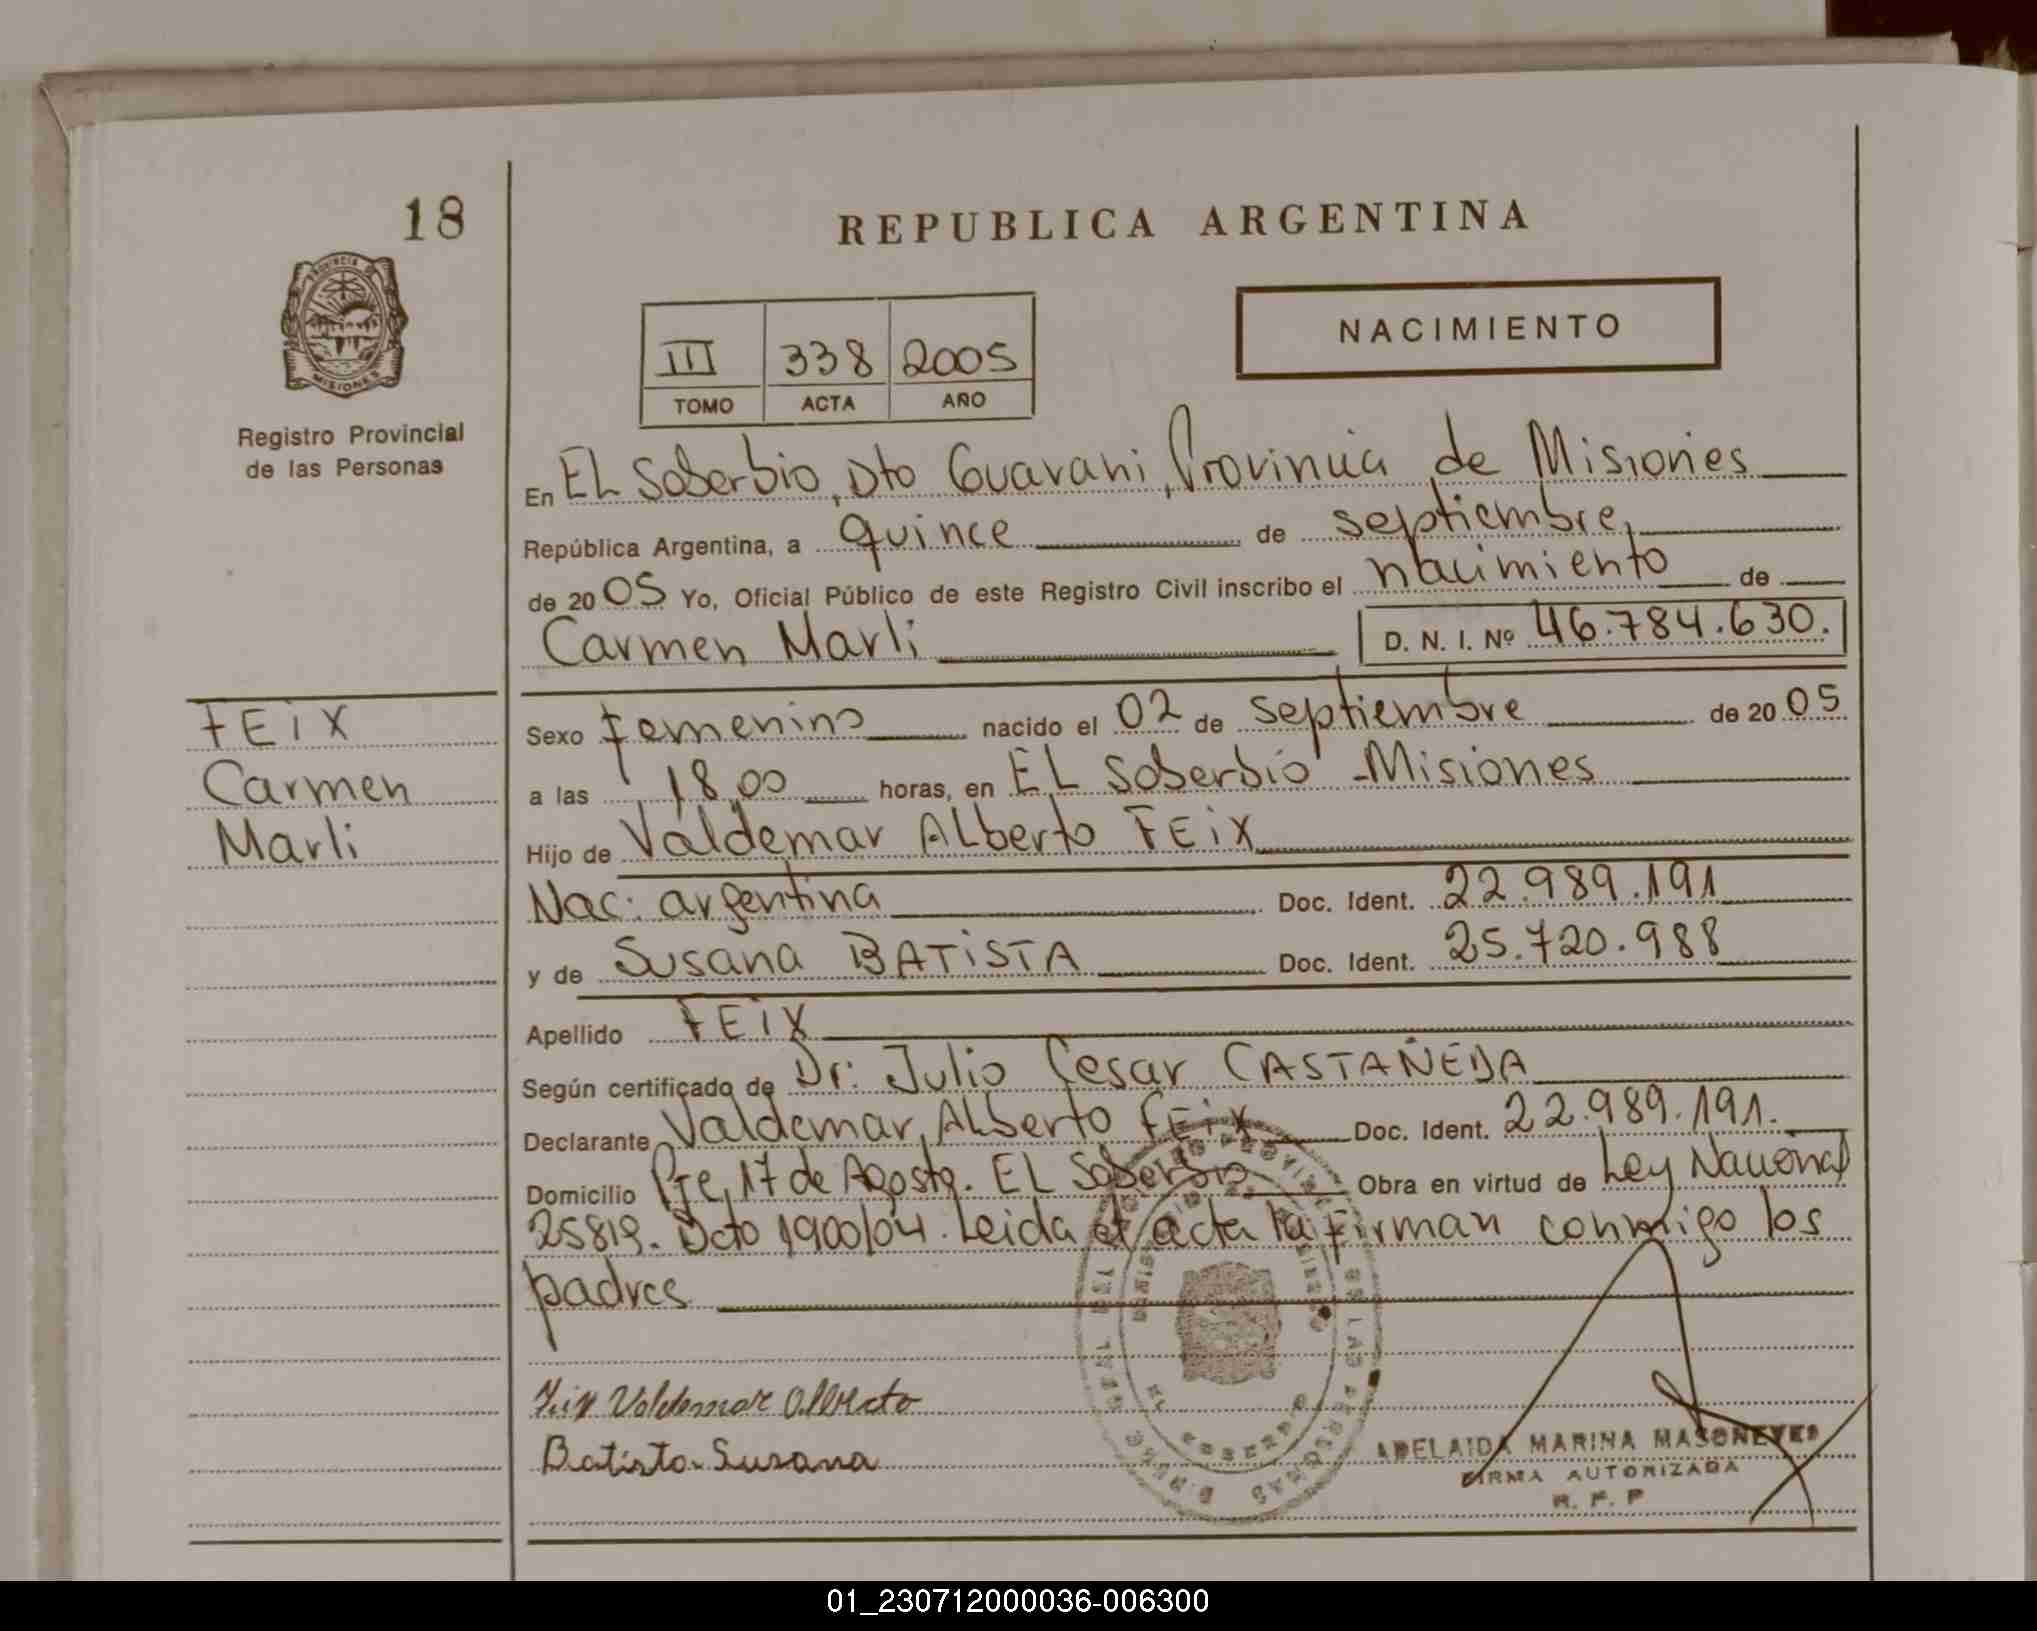 18
REPUBLICA ARGENTINA
PROVINCIA DE
MISIONES
NACIMIENTO
III 338 2005
TOMO ACTA AÑO
Registro Provincial
de las Personas
En EL Soberbio, Dto Guarani, Provincia de Misiones
República Argentina, a quince de septiembre,
de 2005 Yo, Oficial Público de este Registro Civil inscribo el nacimiento de
Carmen Marli D. N. I. Nº 46.784.630.
FEiX
Carmen
Marli
Sexo femenino nacido el 02 de septiembre de 2005
a las 18,00 horas, en EL Soberbio - Misiones
Hijo de Valdemar ALberto FEiX
Nac: argentina Doc. Ident. 22.989.191
y de Susana BATiSTA Doc. Ident. 25.720.988
Apellido FEiX
Según certificado de Dr: Julio Cesar CASTAÑEDA
Declarante Valdemar, ALberto FEiX Doc. Ident. 22.989.191.
Domicilio Pje, 17 de Agosto. EL Soberbio Obra en virtud de Ley Nacional
25819. Dcto 1900/04. Leida el acta la firman conmigo los
padres
Feix Valdemar Alberto
Batista Susana
ADELAIDA MARINA MASONEVES
FIRMA AUTORIZADA
R. P. P
01_230712000036-006300